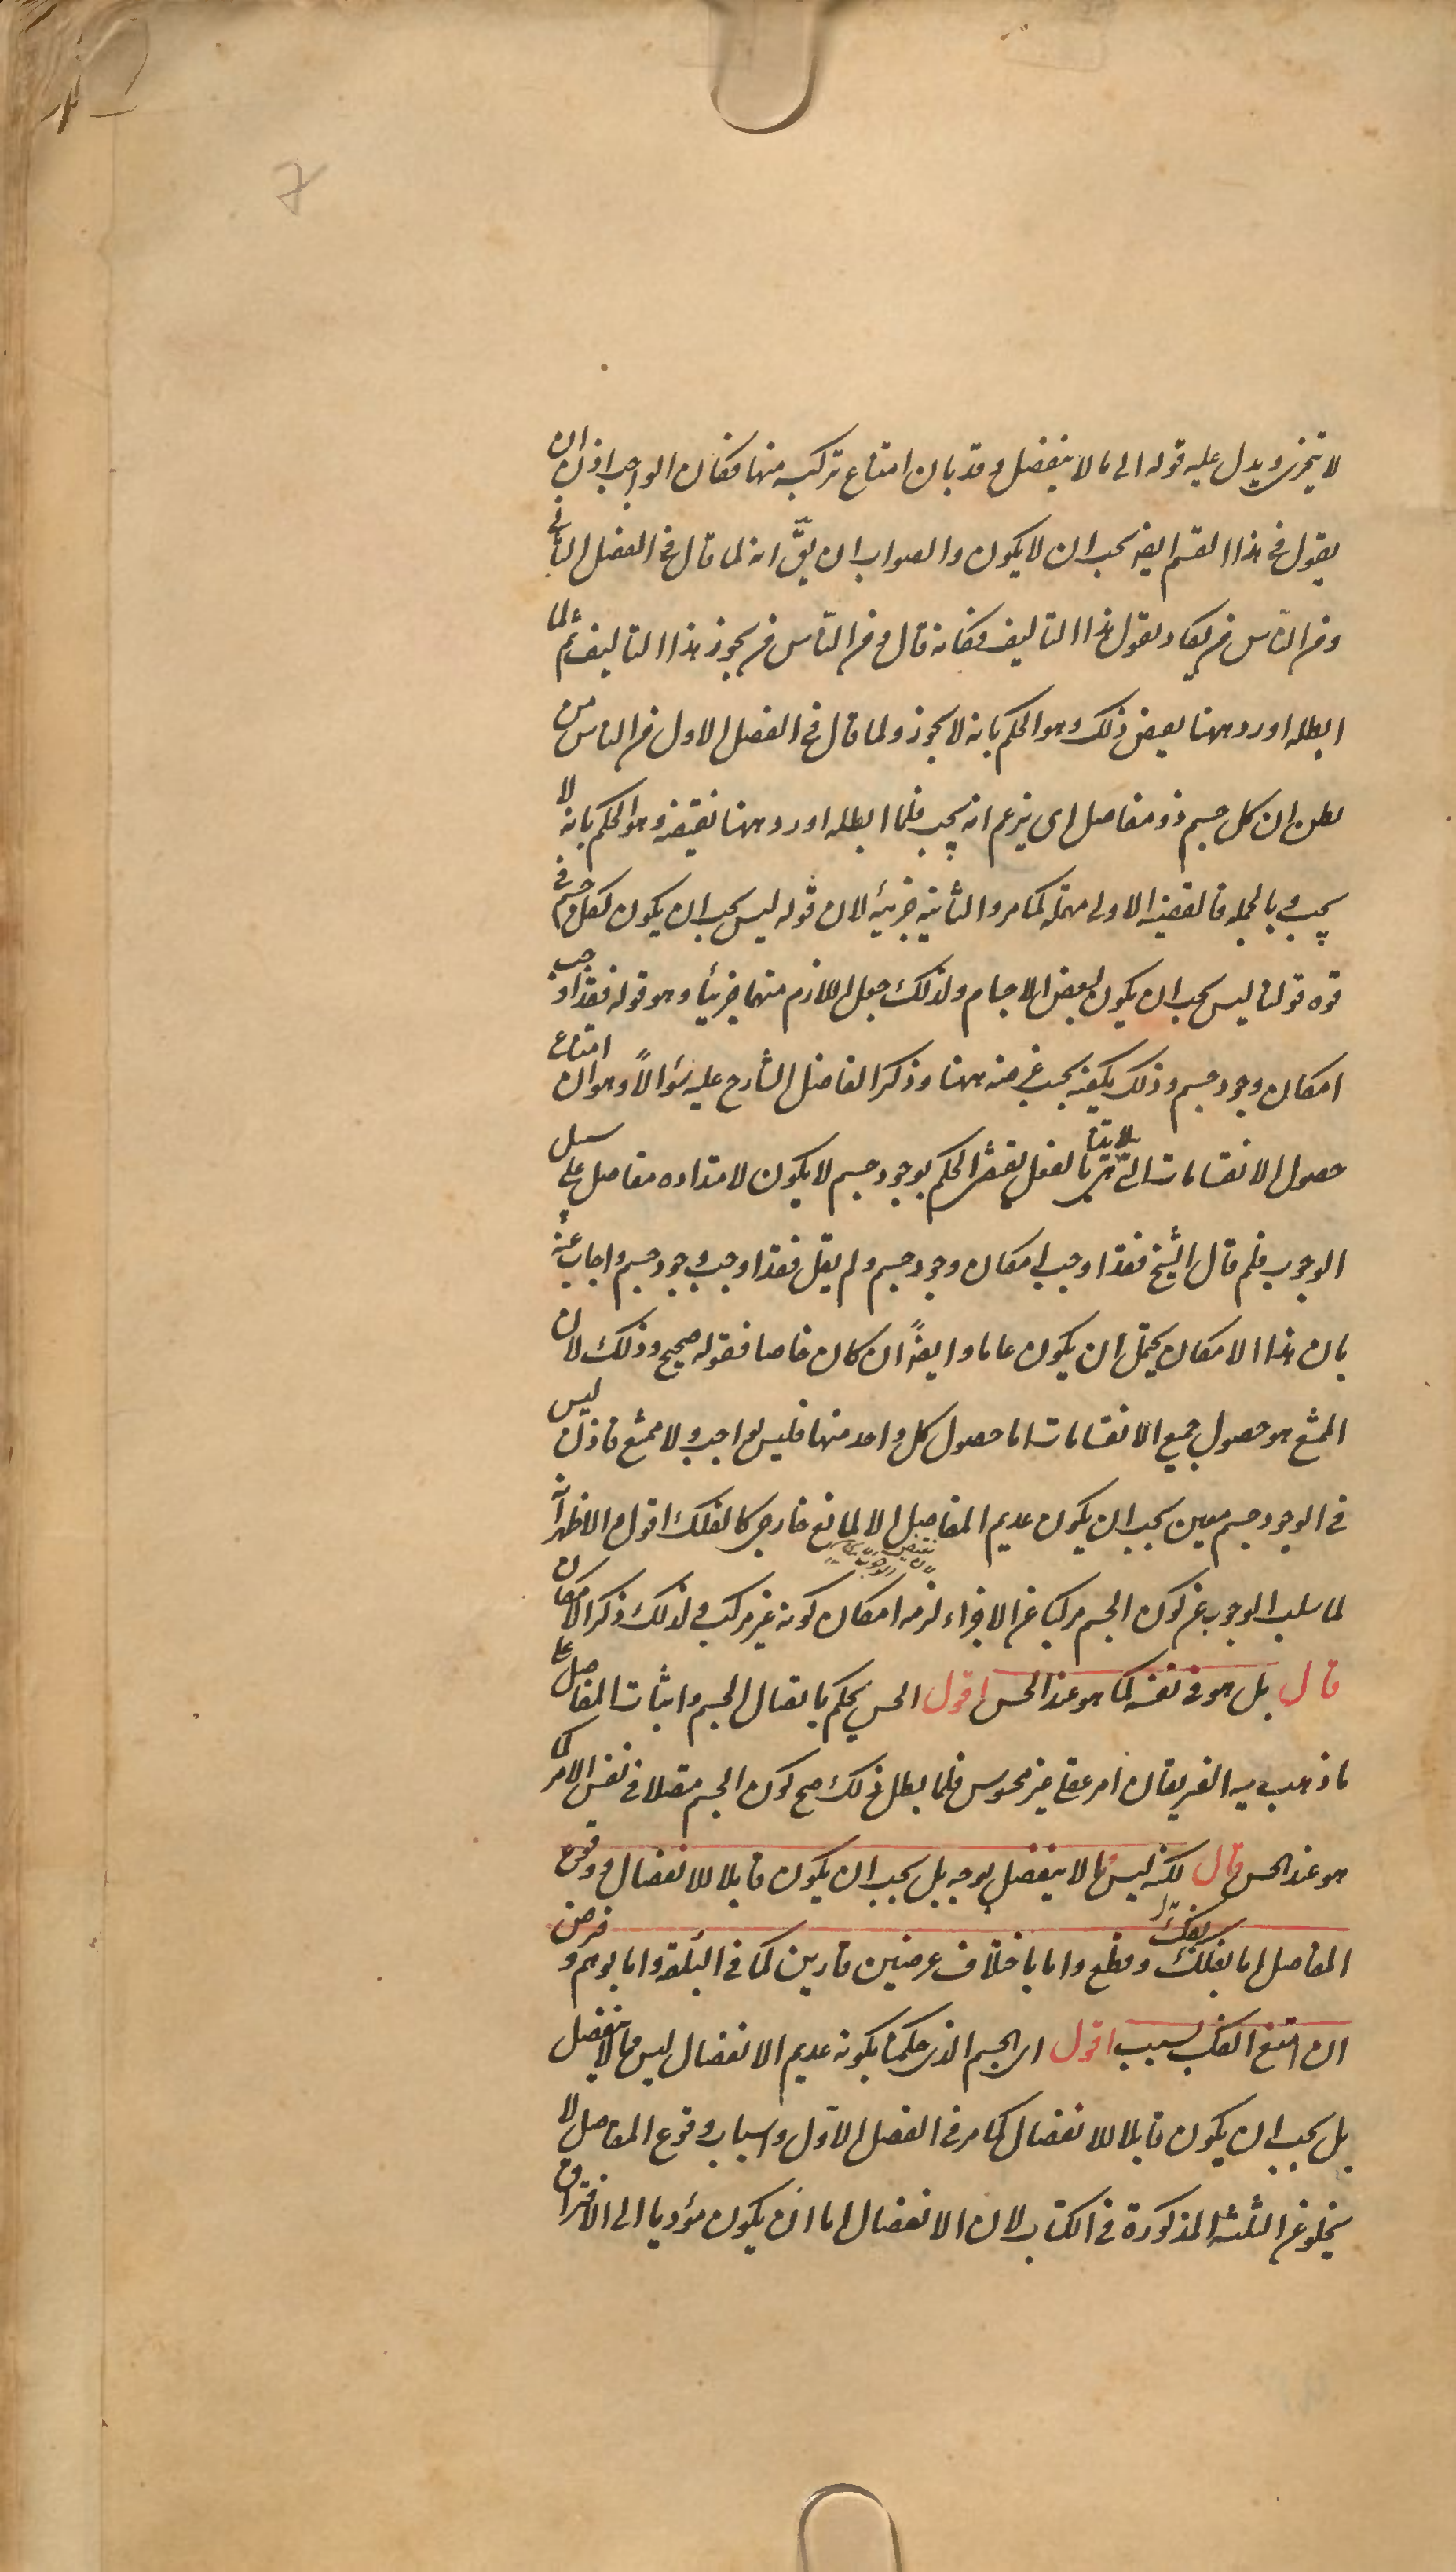 لا يتجزى ويدل عليه قوله الى ما لا ينفصل وقد بان امتناع تركبه منها فكان الواجب اذن ان
يقول في هذا القسم ايضا يجب ان لا يكون والصواب ان يق انه لما قال في الفصل الثاني
ومن الناس من يكاد يقول بهذا التاليف فكانه قال ومن الناس من يجوز هذا التاليف ثم لما
ابطله اورد ههنا نقيض ذلك وهو الحكم بانه لا يجوز ولما قال في الفصل الاول من الناس من
يظن ان كل جسم ذو مفاصل اى يزعم انه يجب فلما ابطله اورد ههنا نقيضه وهو الحكم بانه لا
يجب وبالجملة فالقضية الاولى مهملة كما مر والثانية جزئية لان قوله ليس يجب ان يكون لكل جسم في
قوة قولنا ليس يجب ان يكون لبعض الاجسام ولذلك جعل اللازم منهما جزئيا وهو قوله فقد اوجب
امكان وجود جسم وذلك يكفيه بحسب غرضه ههنا وذكر الفاضل الشارح عليه سؤالا وهو ان امتناع
حصول الانقسامات التى لا يتناهى بالفعل يقتضى الحكم بوجود جسم لا يكون لامتداده مفاصل على سبيل
الوجوب فلم قال الشيخ فقد اوجب امكان وجود جسم ولم يقل فقد اوجب وجود جسم واجاب عنه
بان هذا الامكان يحتمل ان يكون عاما وايضا ان كان خاصا فقوله صحيح وذلك لان
الممتنع هو حصول جميع الانقسامات اما حصول كل واحد منها فليس بواجب ولا ممتنع فاذن ليس
في الوجود جسم معين يجب ان يكون عديم المفاصل الا لمانع خارجى كالفلك اقول والاظهر انه
لما سلب الوجوب عن كون الجسم مركبا من الاجزاء لزمه امكان كونه غير مركب ولذلك ذكر الامكان
قال بل هو في نفسه كما هو عند الحس اقول الحس يحكم باتصال الجسم واثبات المفاصل على
ما ذهب اليه الفريقان امر عقلى غير محسوس فلما بطل ذلك صح كون الجسم متصلا في نفس الامر كما
هو عند الحس قال لكنه ليس مما لا ينفصل بوجه بل يجب ان يكون قابلا للانفصال ووقوع
المفاصل اما بفك وقطع واما باختلاف عرضين قارين كما في البلقة واما بوهم وفرض
ان امتنع الفك لسبب اقول اى الجسم الذى حكمنا بكونه عديم الانفصال ليس مما لا ينفصل
بل يجب ان يكون قابلا للانفصال كما مر في الفصل الاول واسباب وقوع المفاصل لا
يخلو عن الثلثة المذكورة في الكتاب لان الانفصال اما ان يكون مؤديا الى الافتراق